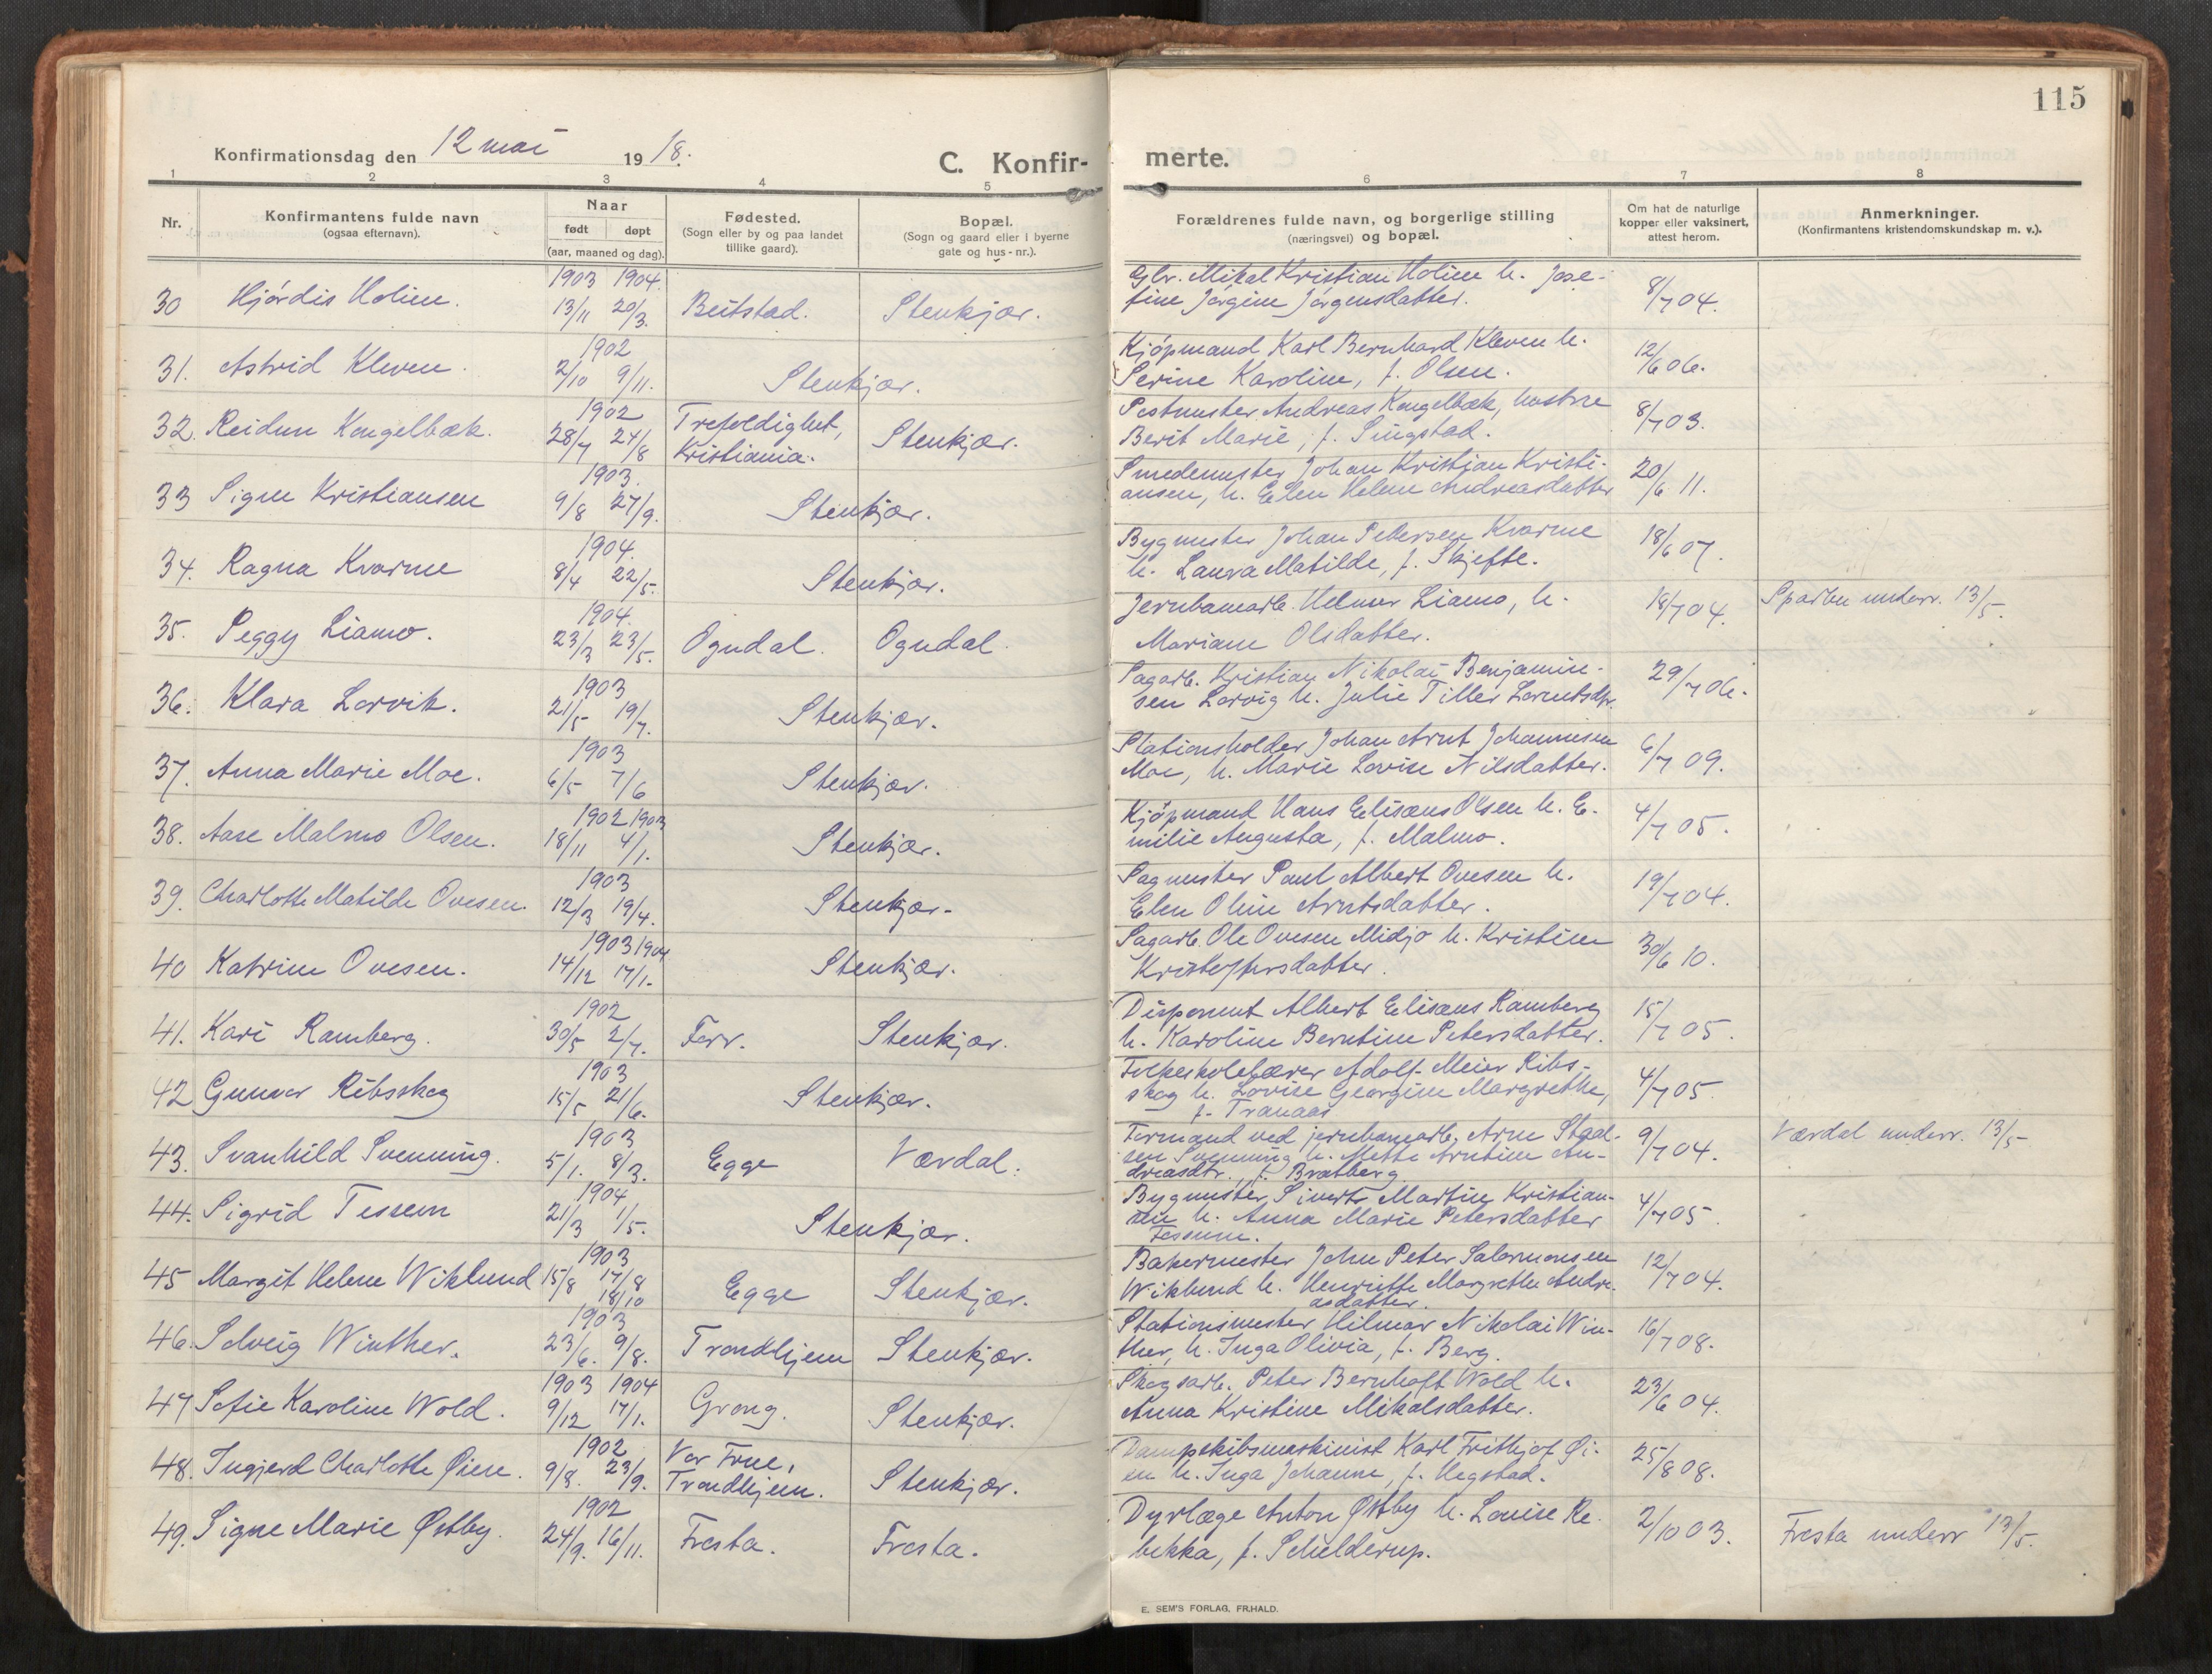 115
Konfirmationsdag den 12 mai 1918.
C. Konfir-
merte.
1 2 3 4 5 6 7 8
Nr.
Konfirmantens fulde navn
(ogsaa efternavn).
Naar
født døpt
(aar, maaned og dag).
Fødested.
(Sogn eller by og paa landet
tillike gaard).
Bopæl.
(Sogn og gaard eller i byerne
gate og hus-nr.).
Forældrenes fulde navn, og borgerlige stilling
(næringsvei) og bopæl.
Om hat de naturlige
kopper eller vaksinert,
attest herom.
Anmerkninger.
(Konfirmantens kristendomskundskap m. v.).
1903 1904.
30 Hjørdis Holien. 13/11 20/3. Beitstad. Stenkjær.
Gbr. Mikal Kristian Holien h. Jose-
fine Jørgine Jørgensdatter. 8/7 04.
1902
31. Astrid Kleven. 2/10 9/11. Stenkjær.
Kjøpmand Karl Bernhard Kleven h.
Serine Karoline, f. Olsen. 12/6 06.
1902
32. Reidun Kongelbæk. 28/7 24/8 Trefoldighet,
Kristiania. Stenkjær.
Postmester Andreas Kongelbæk, hustru
Berit Marie, f. Singstad. 8/7 03.
1903.
33 Signe Kristiansen 9/8 27/9. Stenkjær.
Smedemester Johan Kristian Kristi-
ansen, h. Elen Helene Andreasdatter 20/6 11.
1904.
34. Ragna Kvarme 8/4 22/5. Stenkjær.
Bygmester Johan Petersen Kvarme
h. Laura Matilde, f. Skjefte. 18/6 07.
1904.
35. Peggy Liamo. 23/3 23/5. Ogndal. Ogndal.
Jernbanearb. Helmer Liamo, h.
Mariane Olsdatter. 18/7 04. Sparbu underr. 13/5.
1903
36. Klara Lorvik. 21/5 19/7. Stenkjær.
Sagarb. Kristian Nikolai Benjamin-
sen Lorvig h. Julie Tiller Lorentsdtr. 29/7 06.
1903
37. Anna Marie Moe. 6/5 7/6 Stenkjær.
Stationsholder Johan Arnt Johannesen
Moe, h. Marie Lovise Nilsdatter. 6/7 09.
1902 1903
38. Aase Malmo Olsen. 18/11 4/1. Stenkjær.
Kjøpmand Hans Elisæus Olsen h. E-
milie Augusta, f. Malmo. 4/7 05.
1903
39. Charlotte Matilde Ovesen. 12/3 19/4. Stenkjær.
Sagmester Paul Albert Ovesen h.
Elen Oline Arntsdatter. 19/7 04.
1903 1904
40 Katrine Ovesen. 14/12 17/1. Stenkjær.
Sagarb. Ole Ovesen Midjo h. Kristine
Kristoffersdatter. 30/6 10.
1902
41. Kari Ramberg. 30/5 2/7. Forr. Stenkjær.
Disponent Albert Elisæus Ramberg
h. Karoline Berntine Petersdatter. 15/7 05.
1903
42 Gunvor Ribsskog 15/5 21/6. Stenkjær.
Folkeskolelærer Adolf Meier Ribs-
skog h. Lovise Georgine Margrethe,
f. Tranaas 4/7 05.
1903
43. Svanhild Svenning. 5/1. 8/3. Egge Værdal.
Formand ved jernbanearb. Arne Staal-
sen Svenning h. Mette Arntine An-
dreasdtr., f. Bratberg 9/7 04. Værdal underr. 13/5
1904
44. Sigrid Tessem 21/3 1/5. Stenkjær.
Bygmester Sivert Martin Kristian-
sen h. Anna Marie Petersdatter
Tessem. 4/7 05.
1903
45 Margit Helene Wiklund 15/8 17/8
18/10 Egge Stenkjær.
Bakermester John Peter Salomonsen
Wiklund h. Henriette Margrethe Andre-
asdatter. 12/7 04.
1903
46. Solveig Winther. 23/6. 9/8. Trondhjem Stenkjær.
Stationsmester Hilmar Nikolai Win-
ther, h. Inga Olivia, f. Berg. 16/7 08.
1903 1904
47 Sofie Karoline Wold. 9/12 17/1. Grong. Stenkjær.
Skogsarb. Peter Bernhoft Wold h.
Anna Kristine Mikalsdatter. 23/6 04.
1902
48. Ingjerd Charlotte Øien. 9/8. 23/9. Vor Frue,
Trondhjem. Stenkjær.
Dampskibsmaskinist Karl Frithjof Øi-
en h. Inga Johanne, f. Hegstad. 25/8 08.
1902
49. Signe Marie Østby. 24/9. 16/11. Frosta. Frosta.
Dyrlæge Anton Østby h. Louise Re-
bekka, f. Schelderup. 2/10 03. Frosta underr 13/5.
E. SEM'S FORLAG, FR.HALD.